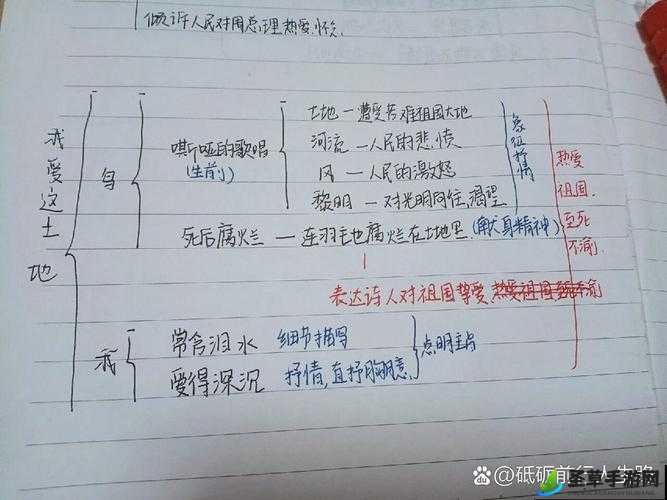 倾诉人民对周总理热爱、怀念
我爱这土地
鸟
嘶哑的歌唱
(生前)
土地 — 遭受苦难祖国大地
河流 — 人民的悲愤
风 — 人民的激怒
黎明 — 对光明向往,渴望
象征抒情
死后腐烂 — 连羽毛也腐烂在土地里 (献身精神)
表达诗人对祖国挚爱,热爱祖国至死不渝
热爱
祖国,
至死
不渝
我
常含泪水 细节描写
爱得深沉 抒情,直抒胸臆
点明主旨
@砥砺前行人生路
圣草手游网